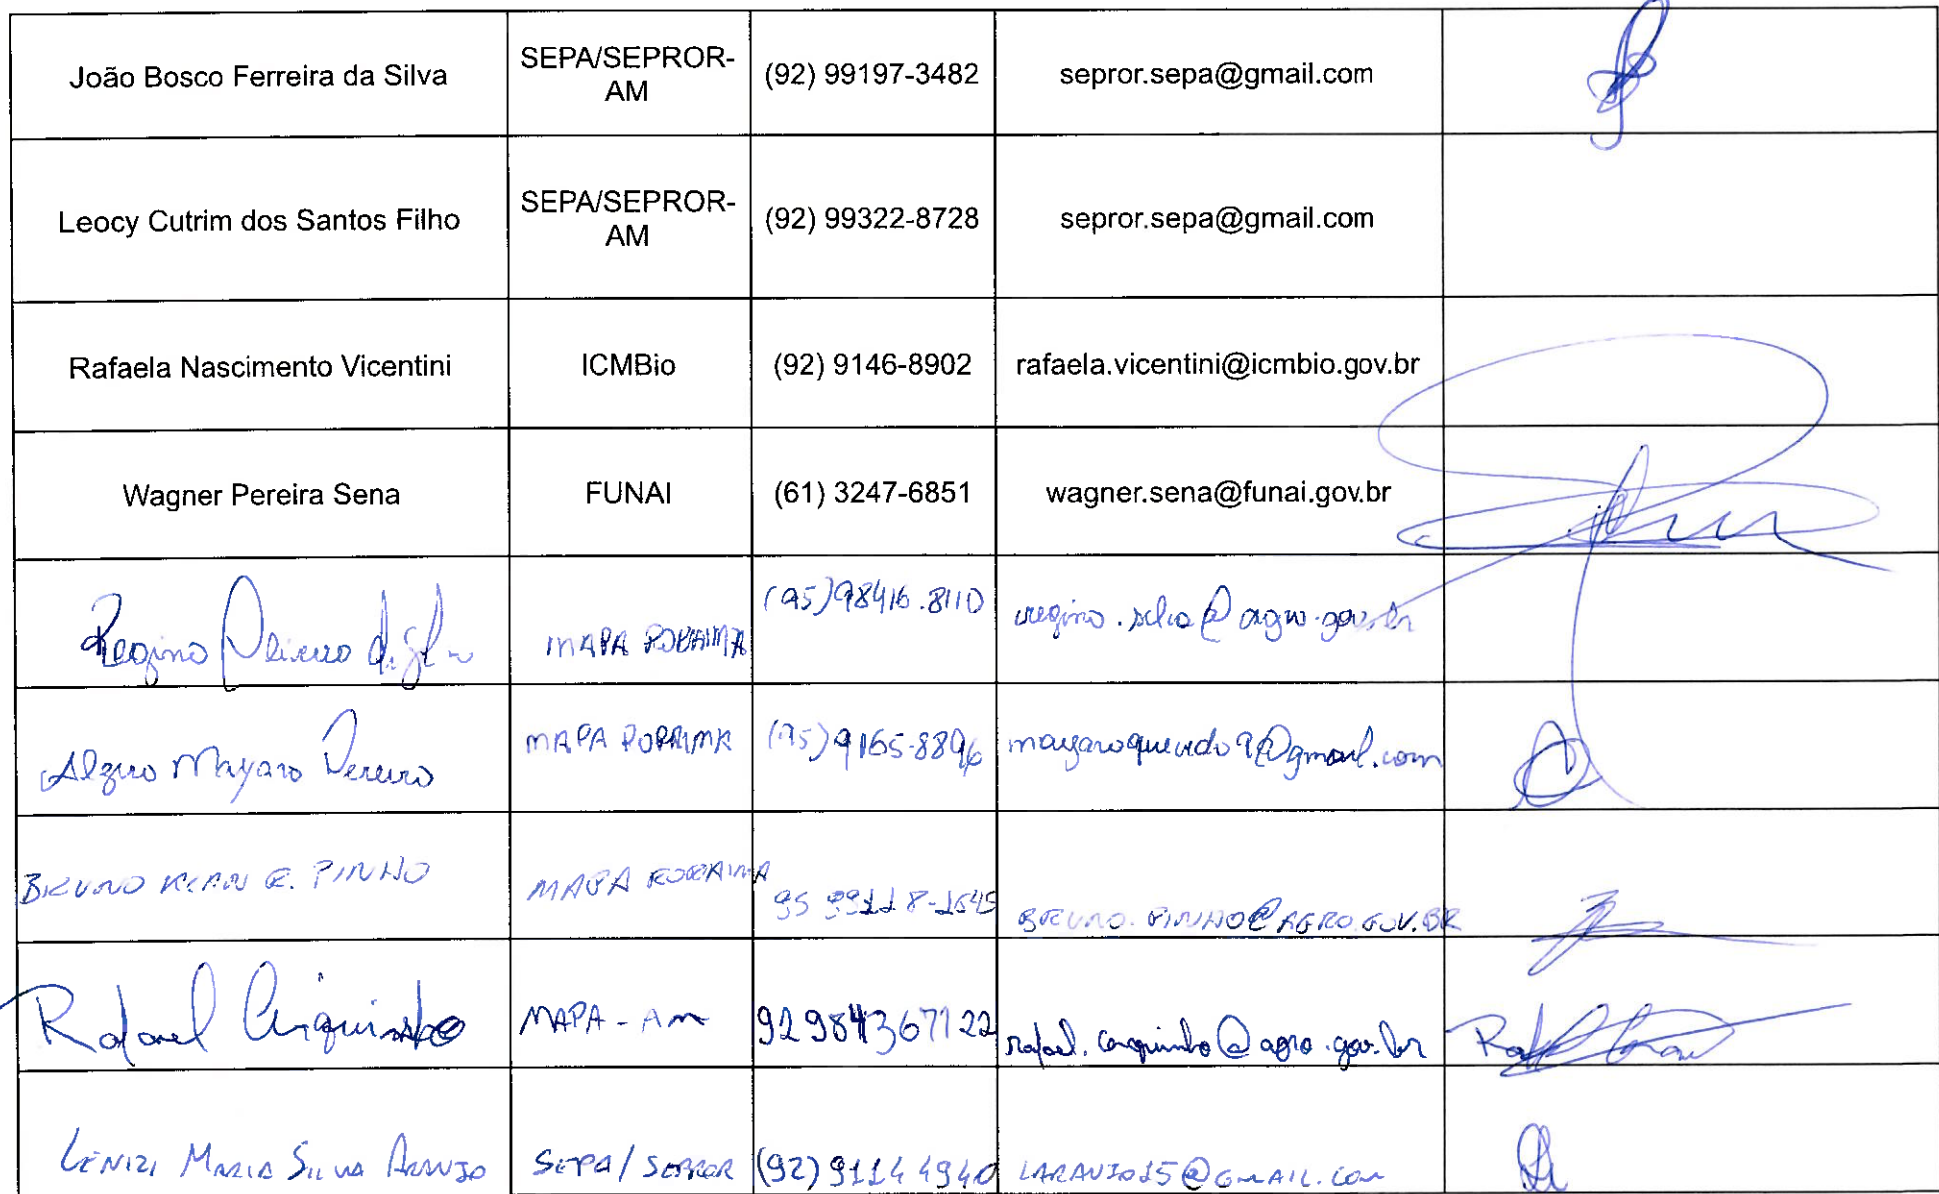 João Bosco Ferreira da Silva SEPA/SEPROR-AM (92) 99197-3482 sepror.sepa@gmail.com
Leocy Cutrim dos Santos Filho SEPA/SEPROR-AM (92) 99322-8728 sepror.sepa@gmail.com
Rafaela Nascimento Vicentini ICMBio (92) 9146-8902 rafaela.vicentini@icmbio.gov.br
Wagner Pereira Sena FUNAI (61) 3247-6851 wagner.sena@funai.gov.br
MAPA RORAIMA (95) 98416.8110
Mayara Pereira MAPA RORAIMA (95) 9165-8896
BRUNO E. PINHO MAPA RORAIMA 95 99118-1645 BRUNO.PINHO@AGRO.GOV.BR
Rafael MAPA-AM 92984367122
LENIZI MARIA SILVA ARAUJO SEPA/SEPROR (92) 91144940 LARAUJO15@GMAIL.COM